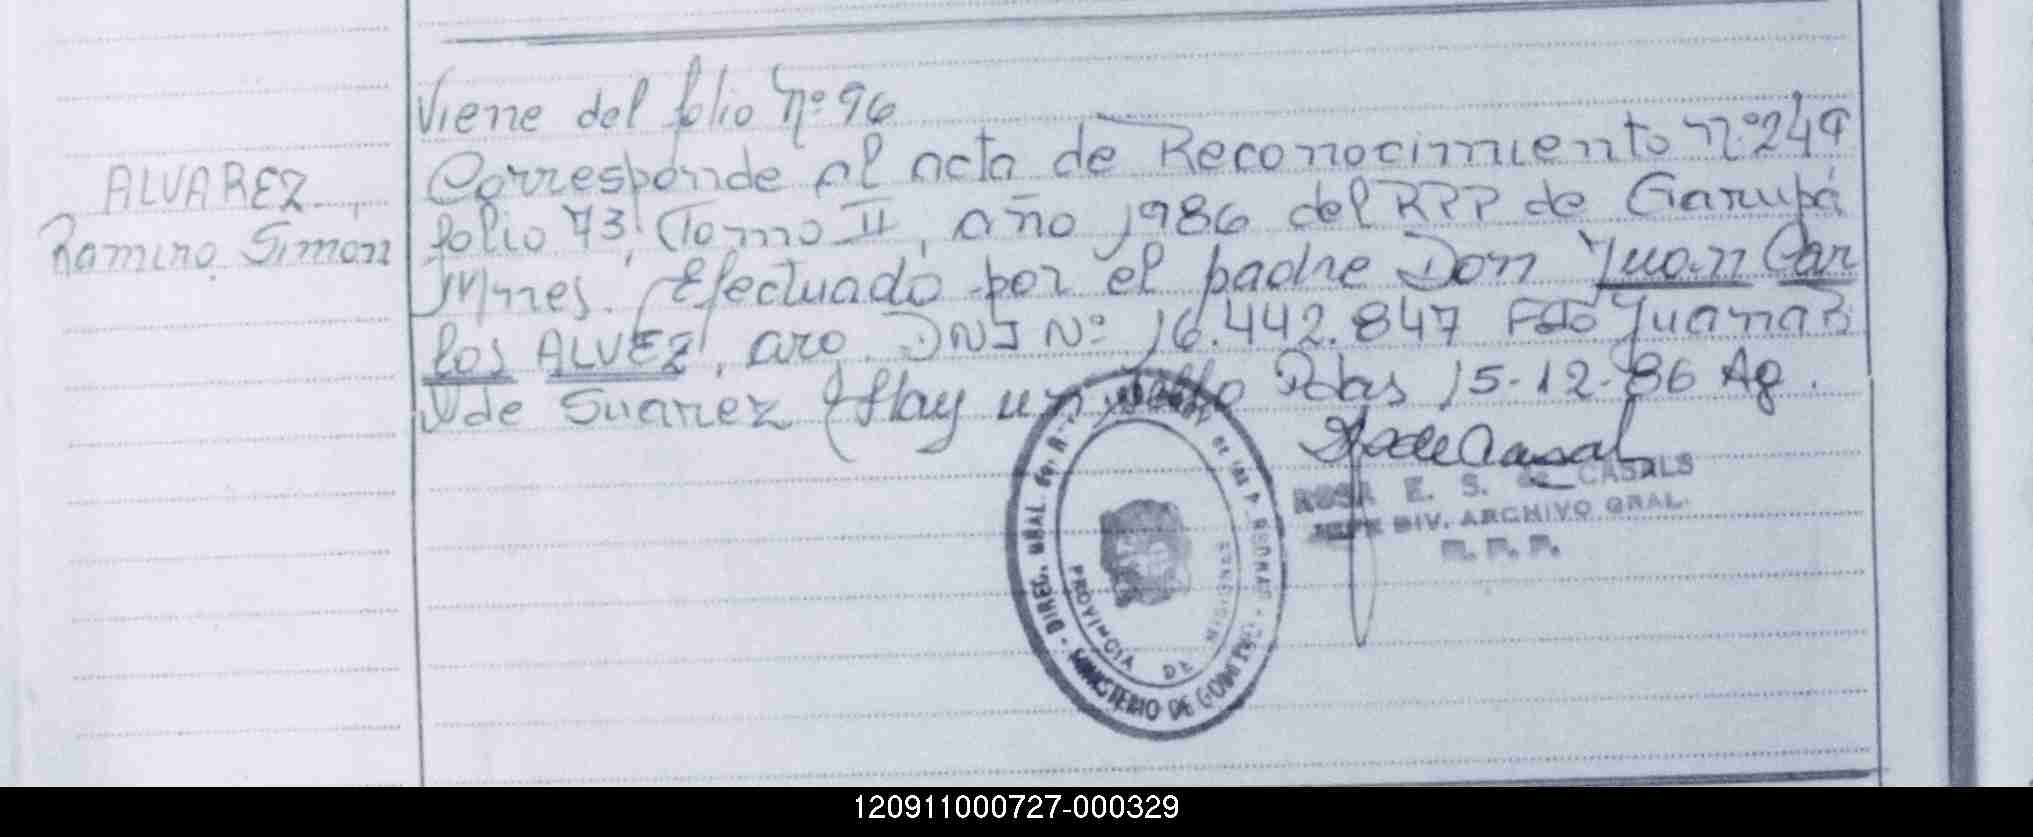 Viene del folio Nº 96
ALVAREZ
Ramiro Simón
Corresponde al acta de Reconocimiento nº 249
folio 73, Tomo II, año 1986 del RPP de Garupá
Mnes. Efectuado por el padre Don Juan Car
los ALVEZ, aro. DNI Nº 16.442.847 Fdo Juana B
V de Suarez (Hay un sello Pdas 15-12-86 Ag.
ROSA E. S. de CASALS
JEFE DIV. ARCHIVO GRAL.
DIREC. GRAL. DE LAS P.
PROVINCIA DE MISIONES
MINISTERIO DE
120911000727-000329